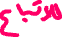 للاتباع